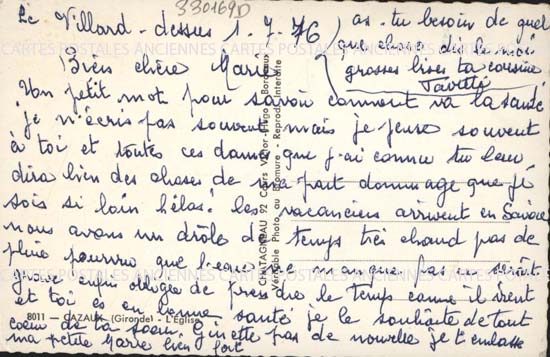 330169D
Le Villard-dessus 1.7.76
as-tu besoin de quel
que chose dis le moi
grosses bises ta cousine
Bien chère Marie
Un petit mot pour savoir comment va la santé
je n'écris pas souvent mais je pense souvent
à toi et toutes ces dames que j'ai connue tu leur
dira bien des choses de ma part dommage que je
sois si loin hélas! les vacanciers arrivent en Savoie
nous avons un drôle de temps très chaud pas de
pluie pourvu que l'eau ne manque pas ce serait
grave enfin obligée de prendre le temps comme il vient
et toi es en bonne santé je te le souhaite de tout
coeur de ta soeur Ginette pas de nouvelle je t'embrasse
ma petite Marie bien fort
CHATAGNEAU 92 Cours Victor-Hugo Bordeaux
Véritable Photo au Bromure - Reprod. Interdite
8011 — CAZAUX (Gironde) - L'Église
CARTES POSTALES ANCIENNES